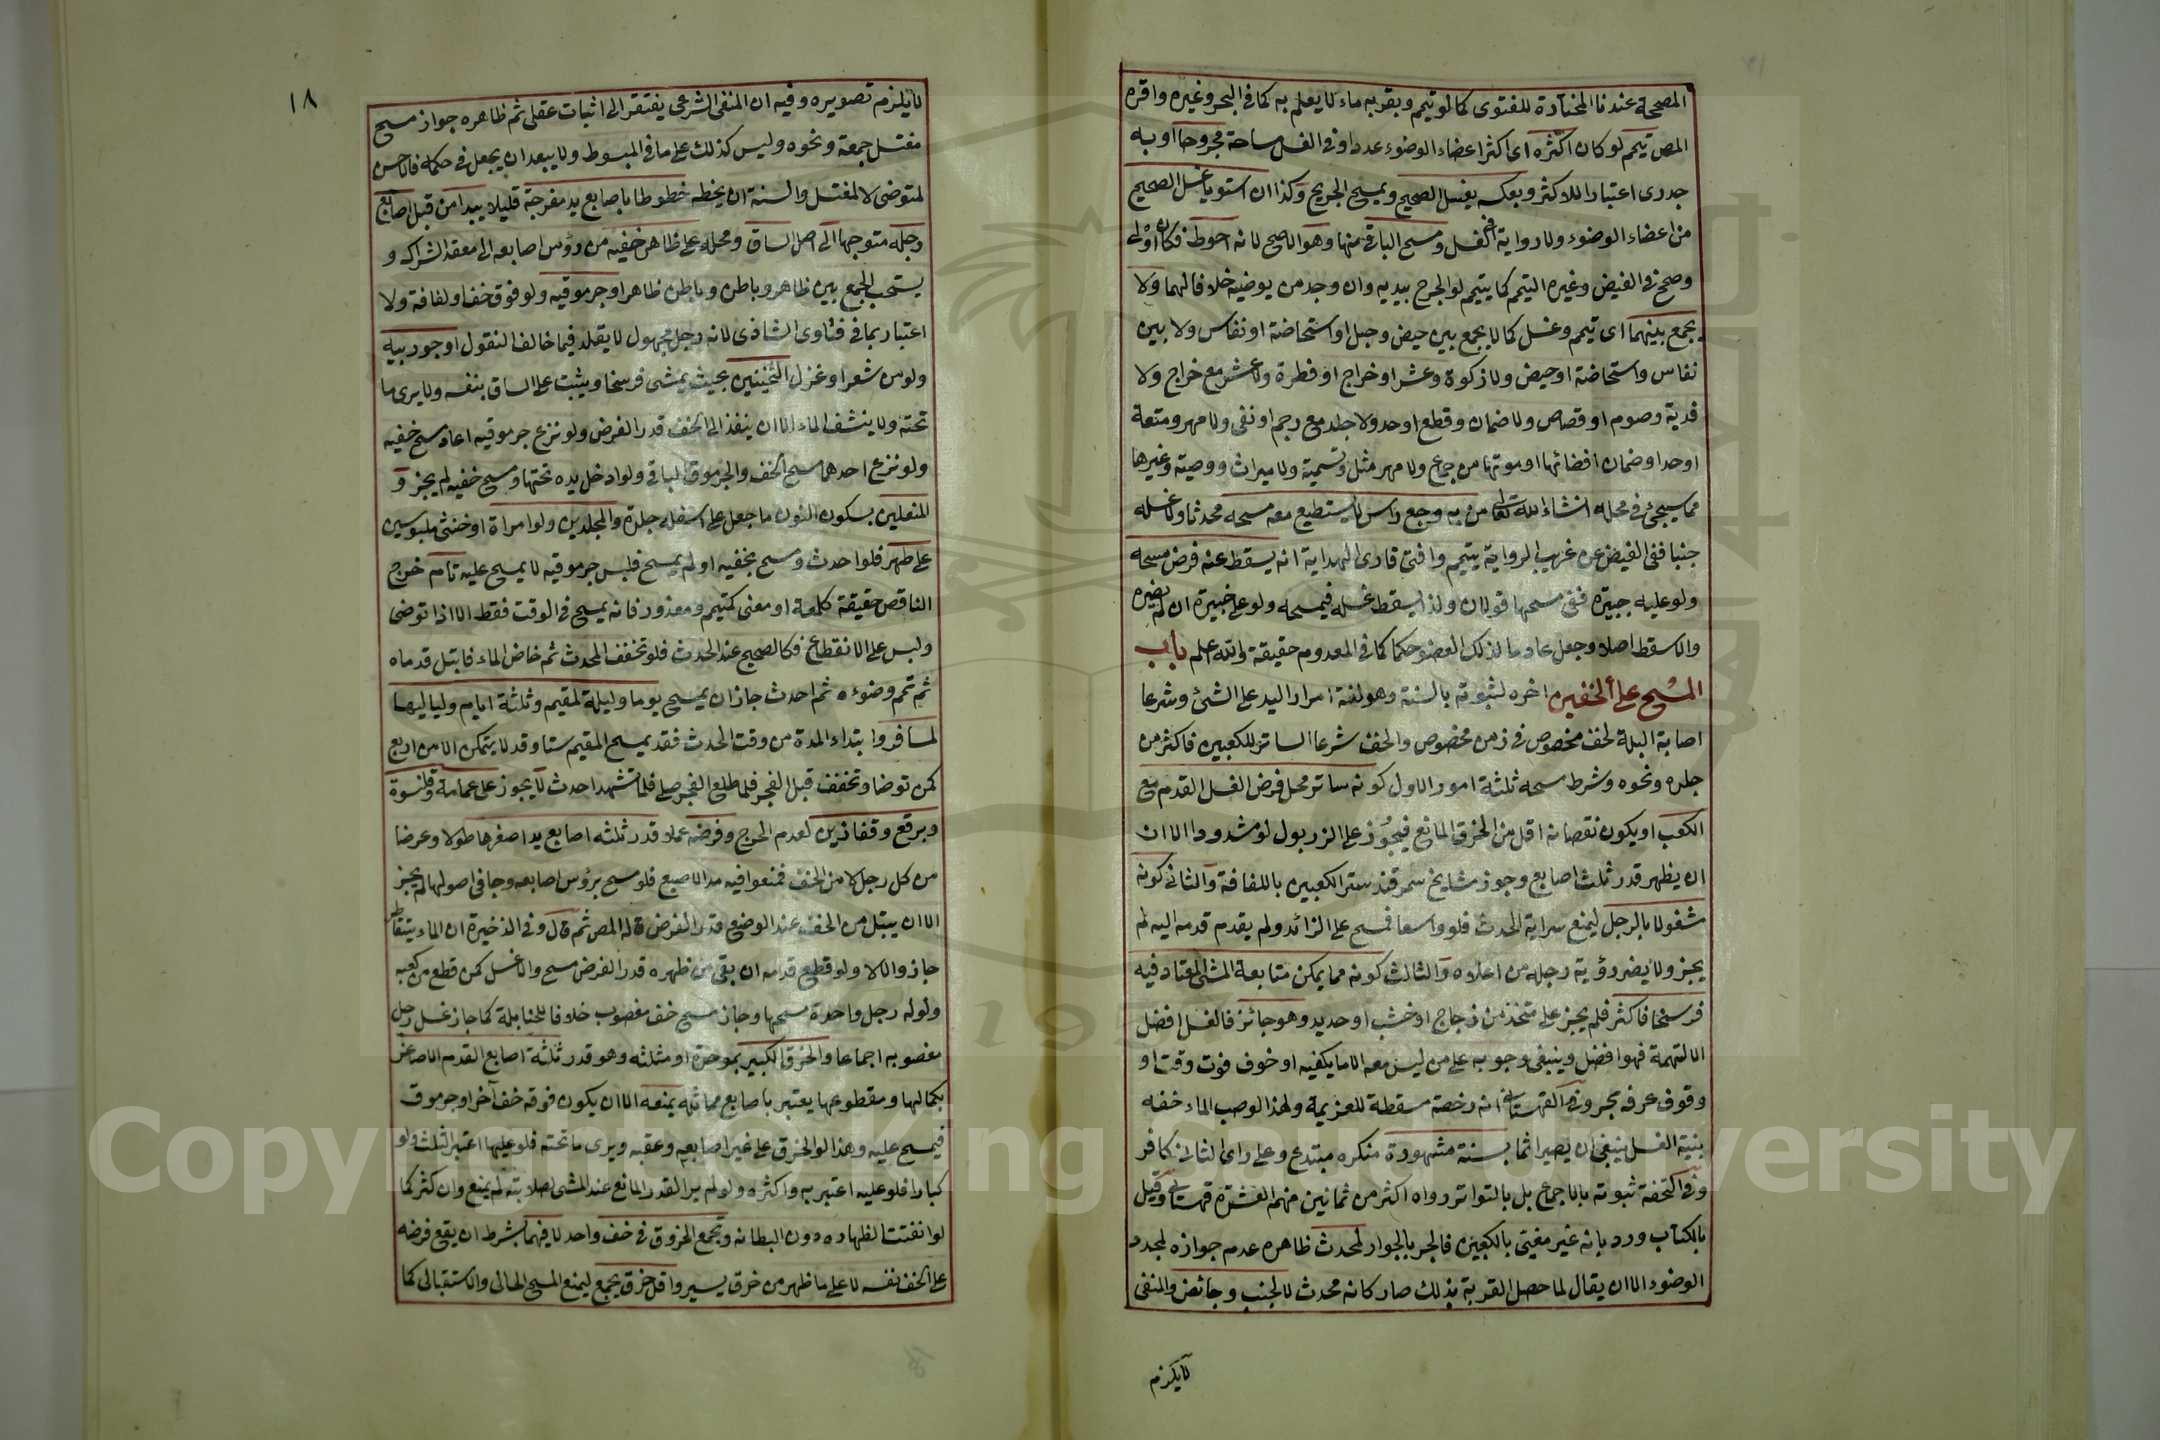 المصححة عندنا المختارة للفتوى كما لو تيمم وبقربه ماء لا يعلم به كما في البحر وغيره واقره
المص تيمم لو كان اكثره اى اكثر اعضاء الوضوء عددا وفي الغسل مساحة مجروحا او به
جدرى اعتبارا للاكثر وبعكسه يغسل الصحيح ويمسح الجريح وكذا ان استويا غسل الصحيح
من اعضاء الوضوء ولا رواية في الغسل ومسح الباقي منها وهو الاصح لانه احوط فكان اولى
وصحح في الفيض وغيره التيمم كما يتيمم لو الجرح بيديه وان وجد من يوضيه خلافا لهما ولا
يجمع بينهما اى تيمم وغسل كما لا يجمع بين حيض وحبل او استحاضة او نفاس ولا بين
نفاس واستحاضة او حيض ولا زكوة وعشر او خراج او فطرة ولا عشر مع خراج ولا
فدية وصوم او قصاص ولا ضمان وقطع او حد ولا جلد مع رجم او نفى ولا مهر ومتعة
او حد او ضمان افضائها او موتها من جماع ولا مهر مثل وتسمية ولا ميراث ووصية وغيرها
مما سيجئ في محله انشاء الله تعالى من به وجع راس لا يستطيع معه مسحه محدثا ولا غسله
جنبا ففى الفيض عن غريب الرواية يتيمم وافتى قارى الهداية انه يسقط عنه فرض مسحه
ولو عليه جبيرة ففى مسحها قولان وكذا يسقط غسله فيمسحه ولو على جبيرة ان لم يضره
والا سقط اصلا وجعل عادما لذلك العضو حكما كما في المعدوم حقيقة والله اعلم باب
المسح على الخفين اخره لثبوته بالسنة وهو لغة امرار اليد على الشئ وشرعا
اصابة البلة لخف مخصوص في زمن مخصوص والخف شرعا الساتر للكعبين فاكثر من
جلد ونحوه وشرط مسحه ثلثة امور الاول كونه ساتر محل فرض الغسل القدم مع
الكعب او يكون نقصانه اقل من الخرق المانع فيجوز على الزربول لو مشدودا الا ان
ان يظهر قدر ثلث اصابع وجوز مشايخ سمرقند ستر الكعبين باللفافة والثانى كونه
مشغولا بالرجل ليمنع سراية الحدث فلو واسعا فمسح على الزائد ولم يقدم قدمه اليه لم
يجز ولا يضر رؤية رجله من اعلاه والثالث كونه مما يمكن متابعة المشى المعتاد فيه
فرسخا فاكثر فلم يجز على متخذ من زجاج او خشب او حديد وهو جائز فالغسل افضل
الا لتهمة فهو افضل وينبغى وجوبه على من ليس معه الا ما يكفيه او خوف فوت وقت او
وقوف عرفه بحر وفي القهستانى انه رخصة مسقطة للعزيمة ولهذا لو صب الماء خفه
بنية الغسل ينبغى ان يصير اثما بسنة مشهورة منكره مبتدع وعلى راى الثانى كافر
وفي التحفة ثبوته بالاجماع بل بالتواتر رواه اكثر من ثمانين منهم العشرة قهستانى وقيل
بالكتاب ورد بانه غير مغيى بالكعبين فالجر بالجوار لمحدث ظاهره عدم جوازه لمجدد
الوضوء الا ان يقال لما حصل القربة بذلك صار كانه محدث لا لجنب وحائض والمنفى
لا يلزم
١٨
لا يلزم تصويره وفيه ان المنفى الشرعى يفتقر الى اثبات عقلى ثم ظاهره جواز مسح
مغتسل جمعة ونحوه وليس كذلك على ما في المبسوط ولا يبعد ان يجعل في حكمه فالاحسن
لمتوضى لا لمغتسل والسنة ان يخطه خطوطا باصابع يد مفرجة قليلا يبدا من قبل اصابع
رجله متوجها الى اصل الساق ومحله على ظاهر خفيه من رؤس اصابعه الى معقد الشراك و
يستحب الجمع بين ظاهر وباطن وباطن ظاهر او جرموقيه ولو فوق خف او لفافة ولا
اعتبار بما في فتاوى الشاذى لانه رجل مجهول لا يقلد فيما خالف النقول او جوربيه
ولو من شعر او غزل الثخينين بحيث يمشى فرسخا ويثبت على الساق بنفسه ولا يرى ما
تحته ولا ينشف الماء الا ان ينفذ الى الخف قدر الفرض ولو نزع جرموقيه اعاد مسح خفيه
ولو نزع احدهما مسح الخف والجرموق الباقى ولو ادخل يده تحتها ومسح خفيه لم يجز و
المنعلين بسكون النون ما جعل على اسفله جلدة والمجلدين ولو امراة او خنثى ملبوسين
على طهر فلو احدث ومسح بخفيه او لم يمسح فلبس جرموقيه لا يمسح عليه تام خرج
الناقص حقيقة كلمعة او معنى كتيمم ومعذور فانه يمسح في الوقت فقط الا اذا توضى
ولبس على الانقطاع فكالصحيح عند الحدث فلو تخفف المحدث ثم خاض الماء فابتل قدماه
ثم تمم وضوءه ثم احدث جاز ان يمسح يوما وليلة لمقيم وثلثة ايام ولياليها
لمسافر وابتداء المدة من وقت الحدث فقد يمسح المقيم ستا وقد لا يتمكن الا من اربع
كمن توضا وتخفف قبل الفجر فلما طلع الفجر صلى فلما تشهد احدث لا يجوز على عمامة وقلنسوة
وبرقع وقفازين لعدم الحرج وفرضه عملا قدر ثلثه اصابع يد اصغرها طولا وعرضا
من كل رجل لا من الخف فمنعوا فيه مد الاصبع فلو مسح برؤس اصابعه وجافى اصولها لم يجز
الا ان يبتل من الخف عند الوضع قدر الفرض قاله المص ثم قال وفي الذخيرة ان الماء يتقاطر
جاز والا لا ولو قطع قدمه ان بقى من ظهره قدر الفرض مسح والا غسل كمن قطع من كعبه
ولو له رجل واحدة مسحها وجاز مسح خف مغصوب خلافا للحنابلة كما جاز غسل رجل
مغصوبه اجماعا والخرق الكبير بموحدة او مثلثه وهو قدر ثلثة اصابع القدم الاصاغر
بكمالها ومقطوعها يعتبر باصابع مماثله يمنعه الا ان يكون فوقه خف آخر او جرموق
فيمسح عليه وهذا لو الخرق على غير اصابعه وعقبه ويرى ما تحته فلو عليها اعتبر الثلث ولو
كبارا فلو عليه اعتبر به واكثره ولو لم ير القدر المانع عند المشى لصلابته لم يمنع وان كثر كما
لو انفتقت الظهاره دون البطانه وتجمع الخروق في خف واحد لا فيهما بشرط ان يقع فرضه
على الخف نفسه لا على ما ظهر من خرق يسير واقل خرق يجمع ليمنع المسح الحالى والاستقبالى كما
Copyright © King Saud University